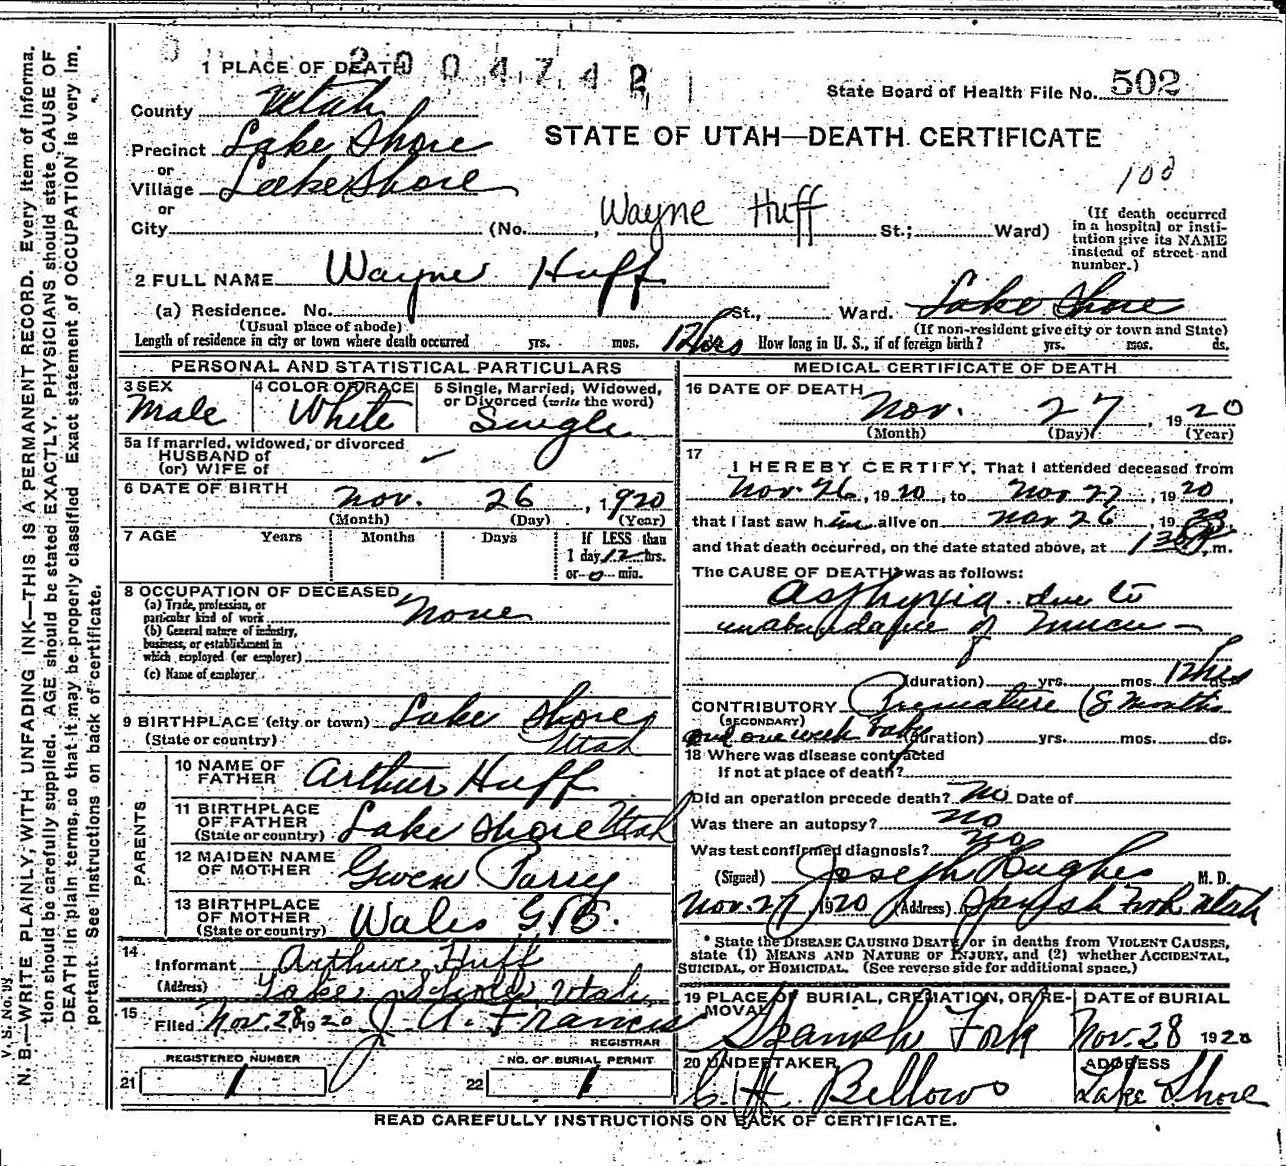 2004742
1 PLACE OF DEATH
State Board of Health File No. 502
County Utah
STATE OF UTAH—DEATH CERTIFICATE
Precinct Lake Shore
or
Village Lake Shore
100
or
City (No. , Wayne Huff St.; Ward)
(If death occurred
in a hospital or insti-
tution give its NAME
instead of street and
number.)
2 FULL NAME Wayne Huff
(a) Residence. No. St., Ward. Lake Shore
(Usual place of abode) (If non-resident give city or town and State)
Length of residence in city or town where death occurred yrs. mos. 12 hrs How long in U. S., if of foreign birth? yrs. mos. ds.
PERSONAL AND STATISTICAL PARTICULARS
3 SEX
Male
4 COLOR OR RACE
White
5 Single, Married, Widowed,
or Divorced (write the word)
Single
5a If married, widowed, or divorced
HUSBAND of
(or) WIFE of
6 DATE OF BIRTH Nov. 26, 1920
(Month) (Day) (Year)
7 AGE Years Months Days
If LESS than
1 day, 12 hrs.
or 0 min.
8 OCCUPATION OF DECEASED
(a) Trade, profession, or
particular kind of work None
(b) General nature of industry,
business, or establishment in
which employed (or employer)
(c) Name of employer
9 BIRTHPLACE (city or town) Lake Shore
(State or country) Utah
PARENTS
10 NAME OF
FATHER Arthur Huff
11 BIRTHPLACE
OF FATHER
(State or country) Lake Shore Utah
12 MAIDEN NAME
OF MOTHER Gwen Parry
13 BIRTHPLACE
OF MOTHER
(State or country) Wales G.B.
14
Informant Arthur Huff
(Address) Lake Shore, Utah
15
Filed Nov. 28, 1920 J. A. Francis
REGISTRAR
REGISTERED NUMBER
21 1
NO. OF BURIAL PERMIT
22 1
MEDICAL CERTIFICATE OF DEATH
16 DATE OF DEATH
Nov. 27, 1920
(Month) (Day) (Year)
17
I HEREBY CERTIFY, That I attended deceased from
Nov 26, 1920, to Nov 27, 1920,
that I last saw him alive on Nov 26, 19
and that death occurred, on the date stated above, at m.
The CAUSE OF DEATH* was as follows:
Asphyxia due to
of mucu
(duration) yrs. mos. 12 hrs ds.
CONTRIBUTORY Premature (8 months
(SECONDARY)
and one week baby (duration) yrs. mos. ds.
18 Where was disease contracted
If not at place of death?
Did an operation precede death? no Date of
Was there an autopsy? no
Was test confirmed diagnosis? no
(Signed) Joseph Hughes M. D.
Nov. 27, 1920 (Address) Spanish Fork Utah
* State the DISEASE CAUSING DEATH, or in deaths from VIOLENT CAUSES,
state (1) MEANS AND NATURE OF INJURY, and (2) whether ACCIDENTAL,
SUICIDAL, or HOMICIDAL. (See reverse side for additional space.)
19 PLACE OF BURIAL, CREMATION, OR RE-
MOVAL
Spanish Fork
DATE of BURIAL
Nov. 28 1920
20 UNDERTAKER
C. H. Bellows
ADDRESS
Lake Shore
READ CAREFULLY INSTRUCTIONS ON BACK OF CERTIFICATE.
V. S. No.
N. B.—WRITE PLAINLY, WITH UNFADING INK—THIS IS A PERMANENT RECORD. Every item of informa-
tion should be carefully supplied. AGE should be stated EXACTLY. PHYSICIANS should state CAUSE OF
DEATH in plain terms, so that it may be properly classified. Exact statement of OCCUPATION is very im-
portant. See instructions on back of certificate.